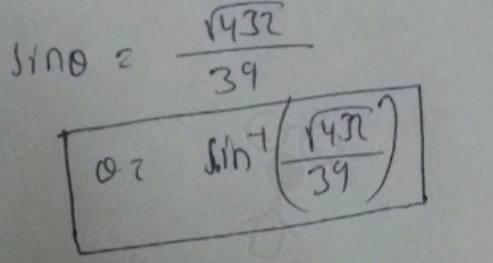 sinθ = √432 / 39
θ = sin⁻¹(√432 / 39)